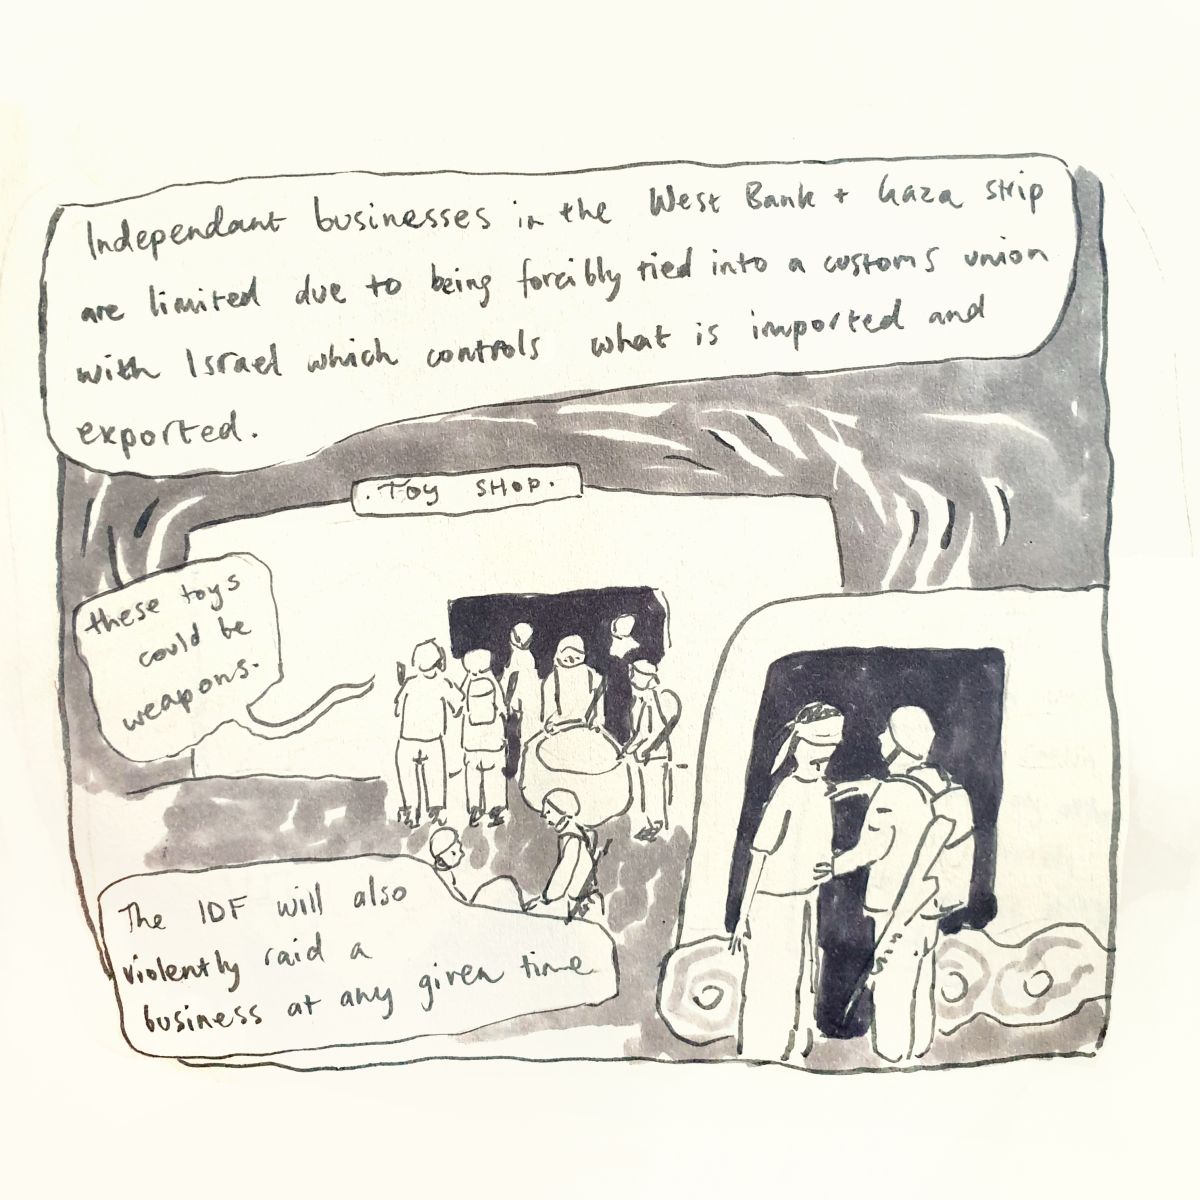 Independant businesses in the West Bank + Gaza strip
are limited due to being forcibly tied into a customs union
with Israel which controls what is imported and
exported.
. TOY SHOP .
these toys
could be
weapons.
The IDF will also
violently raid a
business at any given time